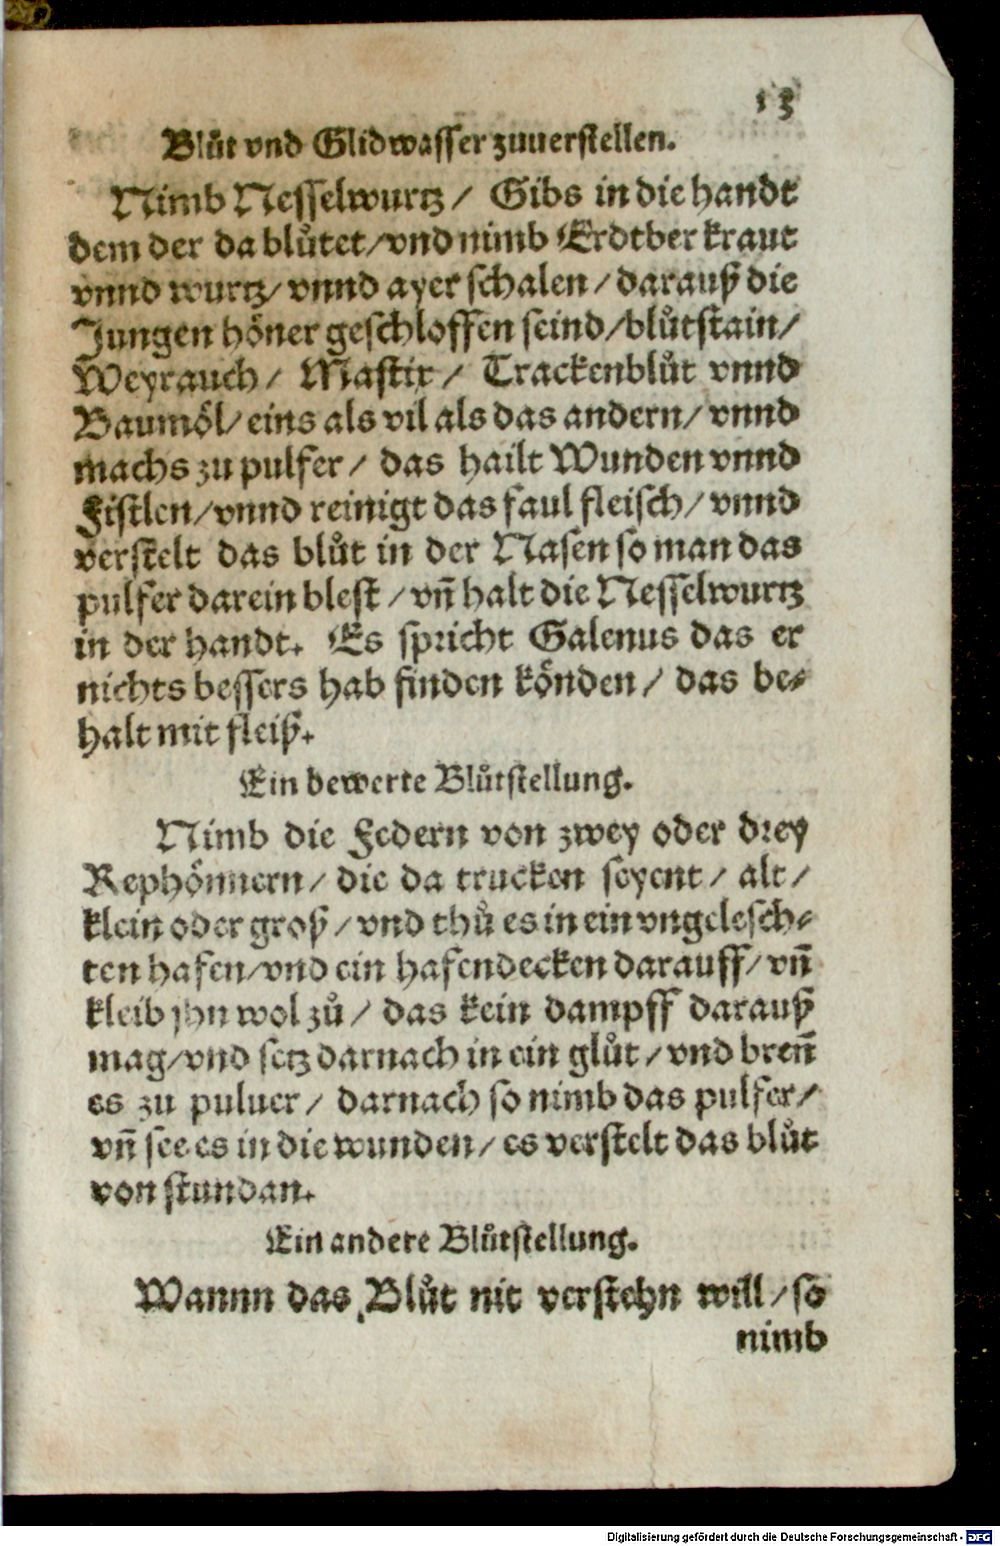 13
Blůt vnd Glidwasser zuuerstellen.
Nimb Nesselwurtz / Gibs in die handt
dem der da blůtet / vnd nimb Erdtber kraut
vnnd wurtz / vnnd ayer schalen / darauß die
Jungen höner geschloffen seind / blůtstain /
Weyrauch / Mastix / Trackenblůt vnnd
Baumöl / eins als vil als das andern / vnnd
machs zu pulfer / das hailt Wunden vnnd
Fistlen / vnnd reinigt das faul fleisch / vnnd
verstelt das blůt in der Nasen so man das
pulfer darein blest / vñ halt die Nesselwurtz
in der handt. Es spricht Galenus das er
nichts bessers hab finden könden / das be⸗
halt mit fleiß.
Ein bewerte Blůtstellung.
Nimb die Federn von zwey oder drey
Rephönnern / die da trucken seyent / alt /
klein oder groß / vnd thů es in ein vngelesch⸗
ten hafen / vnd ein hafendecken darauff / vñ
kleib jhn wol zů / das kein dampff darauß
mag / vnd setz darnach in ein glůt / vnd breñ
es zu puluer / darnach so nimb das pulfer /
vñ see es in die wunden / es verstelt das blůt
von stundan.
Ein andere Blůtstellung.
Wannn das Blůt nit verstehn will / so
nimb
Digitalisierung gefördert durch die Deutsche Forschungsgemeinschaft - DFG